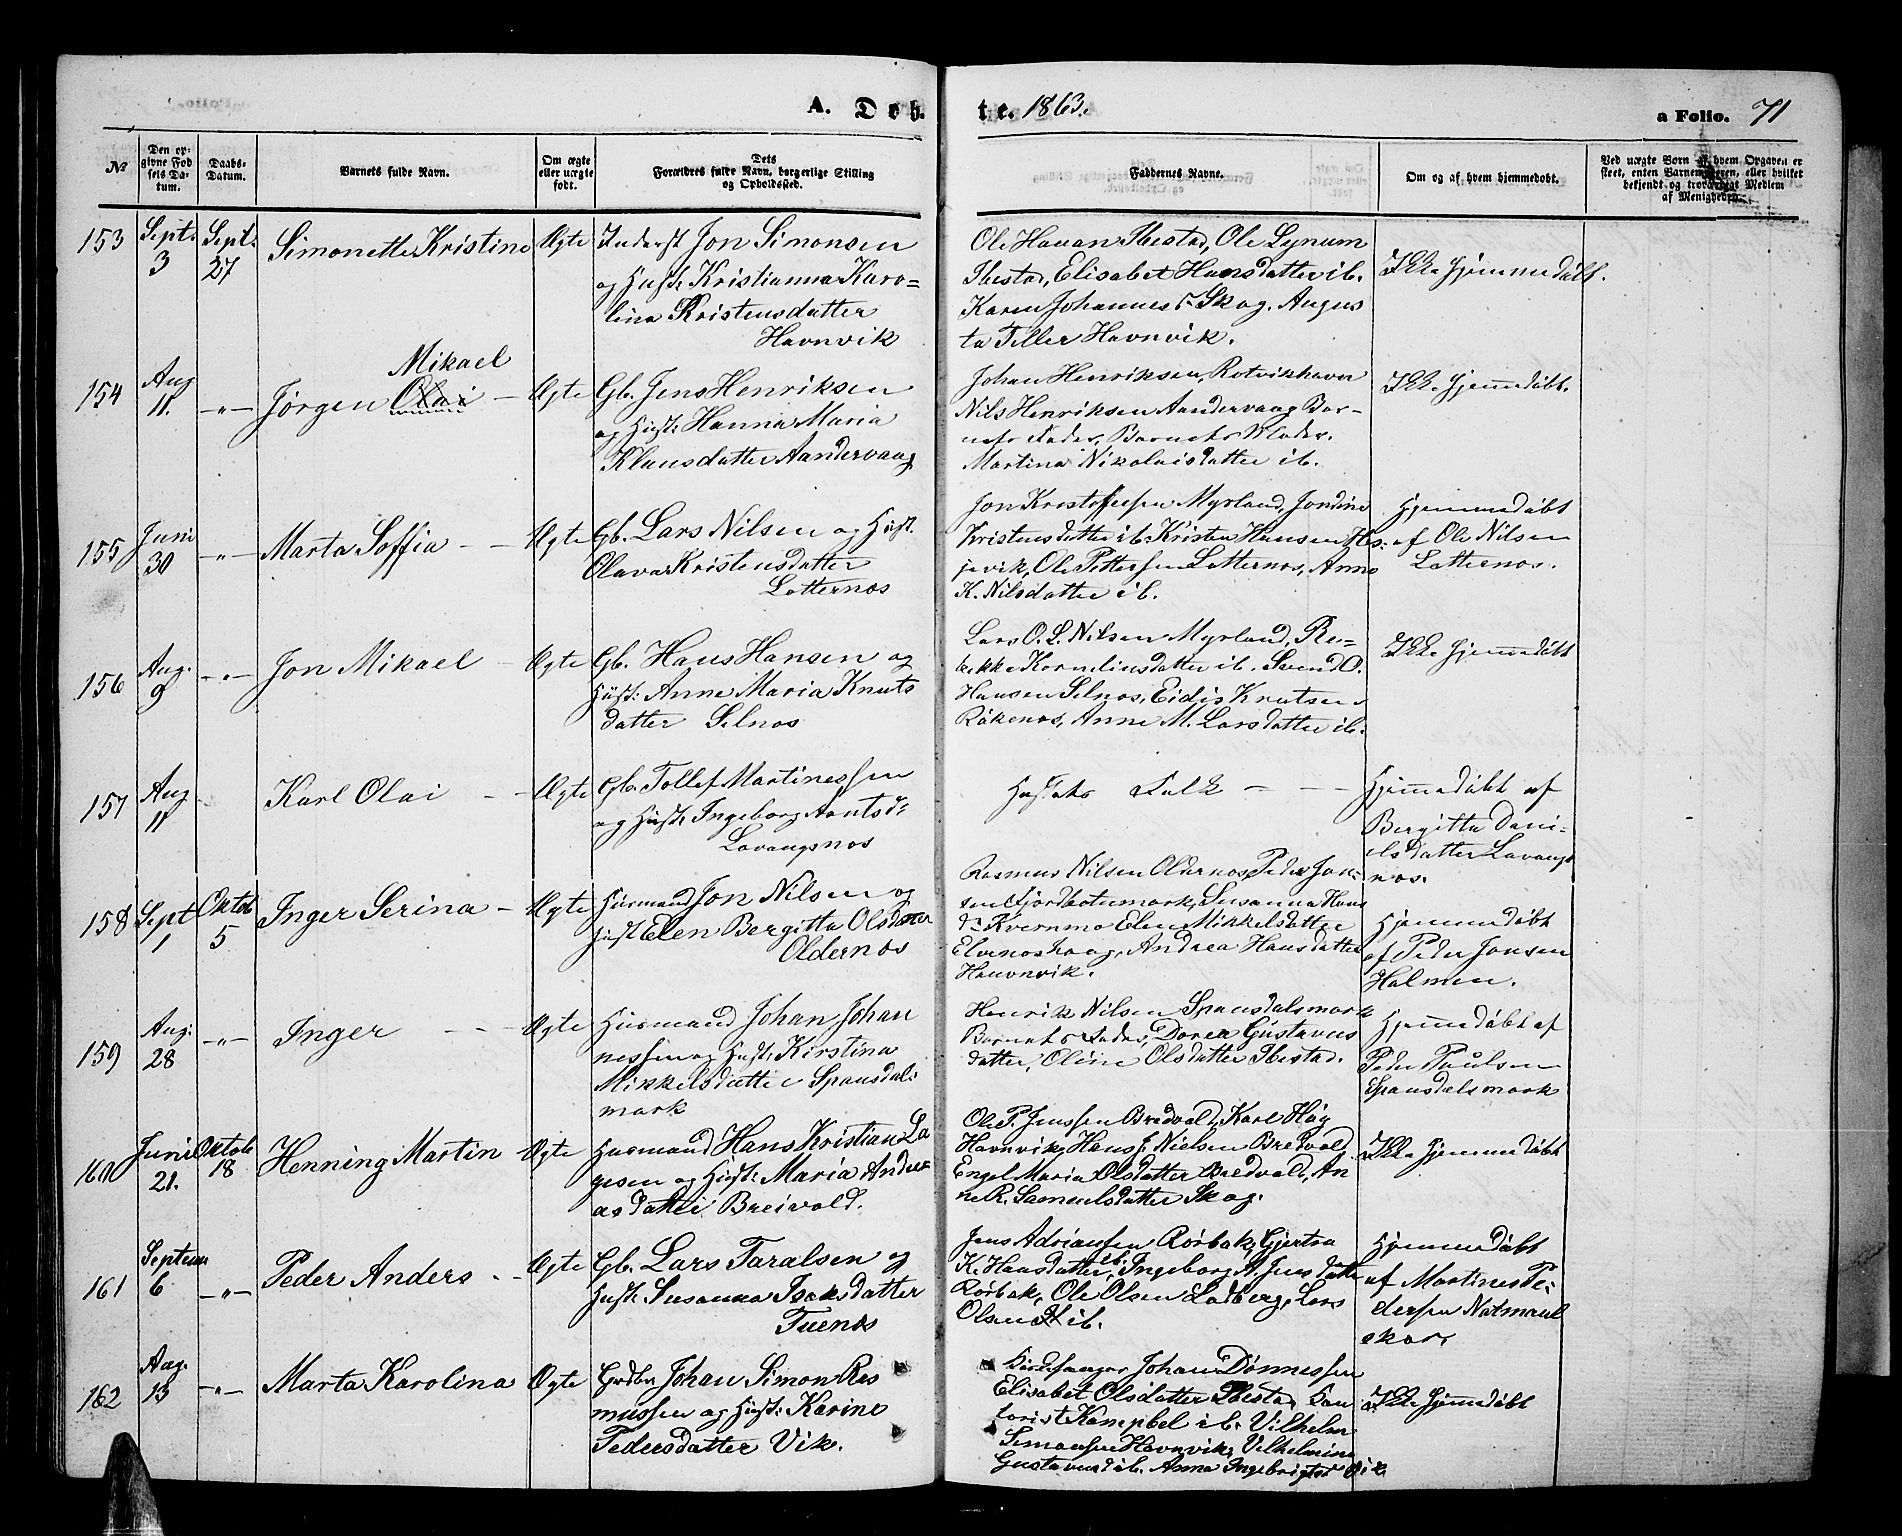 A. Døb-
te. 1863.
a Folio. 71
№
Den op-
givne Fød
sels Da-
tum.
Daabs-
Datum.
Barnets fulde Navn.
Om ægte
eller uægte
født.
Dets
Forældres fulde Navn, borgerlige Stilling
og Opholdssted.
Faddernes Navne.
Om og af hvem hjemmedøbt.
Ved uægte Børn af hvem Opgaven er
skeet, enten Barnemoderen, eller hvilket
bekjendt og troværdigt Medlem
af Menigheden.
153
Sept.
3
Sept.
27
Simonette Kristine
Ægte
Inderst Jon Simonsen
og Hust: Kristianna Karo-
lina Kristensdatter
Havnvik
Ole Havan Ibestad, Ole Lynum
Ibestad, Elisabet Hansdatter ib.
Karen Johannesd: Skog. Augus
ta Teller Havnvik.
Ikke hjemmedøbt.
154
Aug
11.
-"-
Mikael
Jørgen Olai -
Ægte
Gb. Jens Henriksen
og Hust: Hanna Maria
Klausdatter Aandervaag
Johan Henriksen, Rotvikhaven
Nils Henriksen Aandervaag Bar-
nets Fader, Barnets Moder.
Martina Nikolaisdatter ib.
Ikke hjemmedøbt.
155
Juni
30
-"-
Marta Soffia - -
Ægte
Gb. Lars Nilsen og Hust.
Olava Kristensdatter
Lotternos
Jon Kristoffersen Myrland, Jondine
Kristensdatter ib. Kristen Hansen Hes-
jevik, Ole Pettersen Lotternos, Anne
K. Nilsdatter ib.
Hjemmedøbt
af Ole Nilsen
Lotternos.
156
Aug.
9
-"-
Jon Mikael -
Ægte
Gb. Hans Hansen og
Hust: Anne Maria Knuts
datter Selnos
Lars O. L. Nilsen Myrland, Re-
bekke Korneliusdatter ib. Svend O.
Hansen Selnos, Eidis Knutsen
Røkenos, Anne M. Larsdatter ib.
Ikke hjemmedøbt
157
Aug
11
Karl Olai - -
Ægte
Gb. Tollef Martinessen
og Hust: Ingeborg Arntsd:
Lavangsnos
Husets Folk - - -
Hjemmedøbt af
Bergitta Dani-
elsdatter Lavangs
nos.
158
Sept
1
Oktob
5
Inger Serina -
Ægte
Husmand Jon Nilsen og
Hust Elen Bergitta Olsdatter
Oldernos
Rasmus Nilsen Oldernos, Peder Jon-
sen Fjordbotumark, Susanna Hans
d: Kvernmo Elen Mikkelsdatter
Elvenoshaag, Andrea Hansdatter
Havnvik.
Hjemmedøbt
af Peder Jonsen
Holmen.
159
Aug:
28
-"-
Inger - -
Ægte
Husmand Johan Johan
nessen og Hust: Kirstina
Mikkelsdatter Spansdals
mark
Henrik Nilsen Spansdalsmark
Barnets Fader, Dorea Gustavus
datter, Oline Olsdatter Ibestad.
Hjemmedøbt af
Peder Paulsen
Spansdalsmark
160
Juni
21.
Oktob
18
Henning Martin
Ægte
Husmand Hans Kristian La
gesen og Hust: Maria Andre
asdatter Breivold.
Ole P. Jenssen Bredvold, Karl Høg
Havnvik, Hans J. Nielsen Bredvold
Engel Maria Olsdatter Bredvold, An
ne R. Samuelsdatter Skog.
Ikke hjemmedøbt
161
Septem
6
-"-
Peder Anders -
Ægte
Gb. Lars Taralsen og
Hust: Susanna Isaksdatter
Tuenos
Jens Adriansen Rørbak, Gjertru
K. Hansdatter ib. Ingeborg A. Jensdatter
Rørbak, Ole Olsen Lodberg, Lars
Olsen ib.
Hjemmedøbt
af Martines Pe-
dersen Notmanl
skor.
162
Aug.
13
-"-
Marta Karolina
Ægte
Grdbr Johan Simon Ras
mussen og Hust: Karine
Pedersdatter Vik.
Kirkesanger Johan Dønnessen
Elisabet Olsdatter Ibestad Kon
torist Kampbel ib. Vilhelm
Simonsen Havnvik, Vilhelmine
Gustavusd ib. Anna Ingebrigtsd Vik
Ikke hjemmedøbt